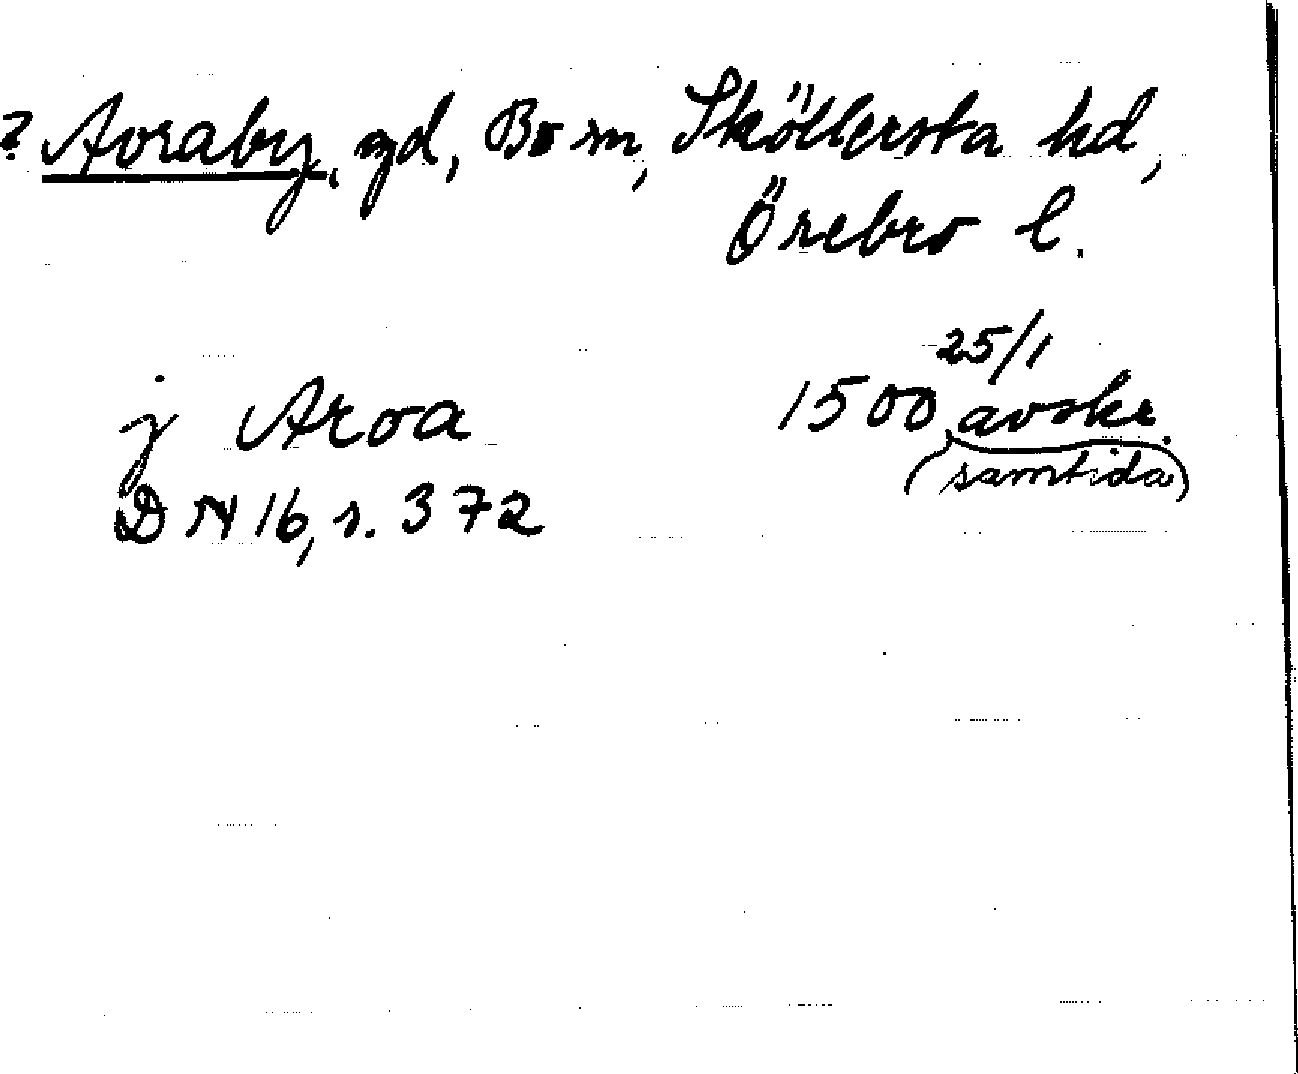 ? Avraby, gd, Bo sn, Sköllersta hd,
Örebro l.
j Aroa 1500 25/1 avskr.
(samtida)
DN 16, s. 372